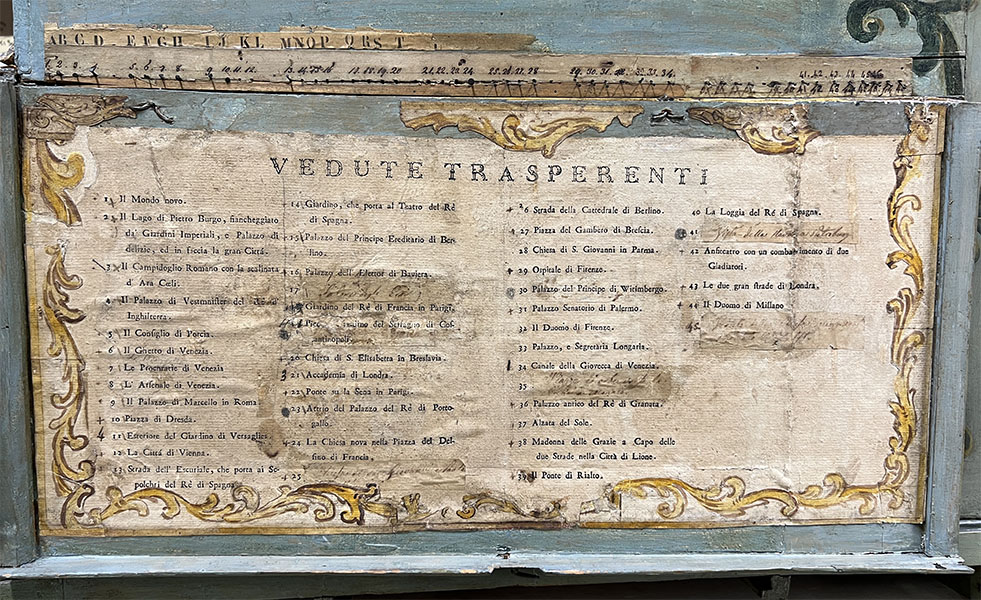 ABCD EFGH IJ KL MNOP QRS T
2. 3. 4 5. 6. 7. 8 9 10. 11. 12. 13. 14. 15. 16. 17. 18. 19. 20 21. 22. 23. 24 25. 26. 27. 28 29. 30. 31. 32. 33. 34. 41. 42. 43. 44 45 46
VEDUTE TRASPERENTI
1 Il Mondo novo.
2 Il Lago di Pietro Burgo, fiancheggiato
da' Giardini Imperiali, e Palazzo di
delizie, ed in faccia la gran Cittá.
3 Il Campidoglio Romano con la scalinata
d' Ara Celi.
4 Il Palazzo di Vestminster del
Inghilterra.
5 Il Consiglio di Porcia.
6 Il Ghetto di Venezia.
7 Le Procuratie di Venezia
8 L' Arsenale di Venezia.
9 Il Palazzo di Marcello in Roma
10 Piazza di Dresda.
11 Esteriore del Giardino di Versaglies.
12 La Cittá di Vienna.
13 Strada dell' Escuriale, che porta ai Se-
polchri del Rè di Spagna
14 Giardino, che porta al Teatro del Rè
di Spagna.
15 Palazzo del Principe Ereditario di Ber-
lino.
16 Palazzo dell' Elettor di Baviera.
17
18 Giardino del Rè di Francia in Parigi.
del Serraglio di Cos-
tantinopoli.
20 Chiesa di S. Elisabetta in Breslavia.
21 Accademia di Londra.
22 Ponte su la Sena in Parigi.
23 Attrio del Palazzo del Rè di Porto-
gallo.
24 La Chiesa nova nella Piazza del Del-
fino di Francia.
25
26 Strada della Cattedrale di Berlino.
27 Piazza del Gambero di Brescia.
28 Chiesa di S. Giovanni in Parma.
29 Ospitale di Firenze.
30 Palazzo del Principe di Wirtembergo.
31 Palazzo Senatorio di Palermo.
32 Il Duomo di Firenze.
33 Palazzo, e Segretaria Longaria.
34 Canale della Giovecca di Venezia.
35
36 Palazzo antico del Rè di Granata.
37 Alzata del Sole.
38 Madonna delle Grazie a Capo delle
due Strade nella Cittá di Lione.
39 Il Ponte di Rialto.
40 La Loggia del Rè di Spagna.
41
42 Anfiteatro con un combattimento di due
Gladiatori.
43 Le due gran strade di Londra.
44 Il Duomo di Millano
45